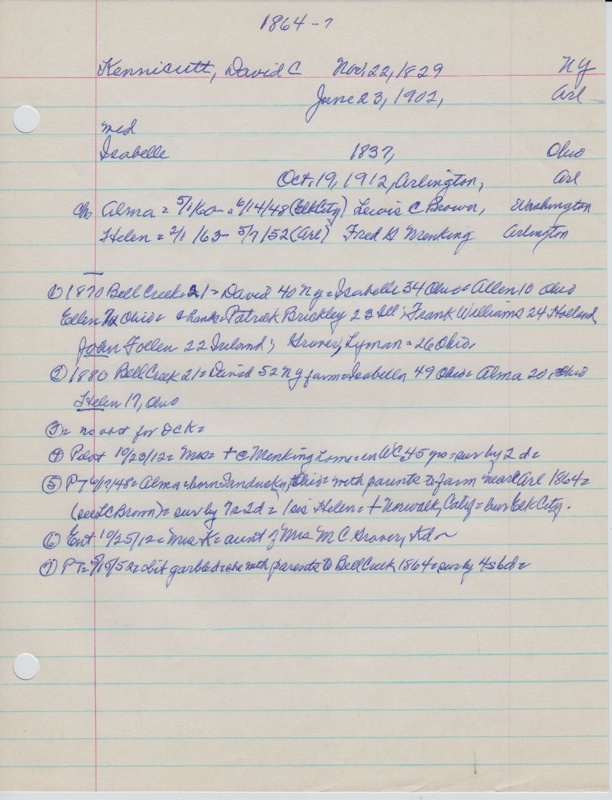 1864-?
Kennicutt, David C Nov. 22, 1829 NY
June 23, 1902, Arl
md
Isabelle 1837, Ohio
Oct. 19, 1912, Arlington, Arl
ch Alma = 5/1/60 - 6/14/48 (Elk City) Lewis C Brown, Washington
Helen = 2/1/63 - 5/7/52 (Arl) Fred G Menking Arlington
① 1870 Bell Creek 21 = David 40 NY = Isabelle 34 Ohio = Allen 10 Ohio
Ellen 7 Ohio = Patrick Brickley 22 Ill; Frank Williams 24 Holland
John Follen 22 Ireland; Grover, Lyman = 26 Ohio.
② 1880 Bell Creek 21 = David 52 NY farm = Isabella 49 Ohio = Alma 20, Ohio
Helen 17, Ohio
③ = no obit for DCK =
④ Pilot 10/23/12 = Mrs = + c Menking home = in WC 45 yrs = sur by 2 d =
⑤ PT 6/17/48 = Alma = born Sandusky, Ohio = with parents to farm near Arl 1864 =
(see LC Brown) = sur by 7s 2d = 1 sis Helen = + Norwalk, Calif = bur Elk City.
⑥ Ent 10/25/12 = Mrs K = aunt of Mrs M C Grover,
⑦ PT = 5/15/52 = obit garbled = she with parents to Bell Creek 1864 = sur by 4s 6d =